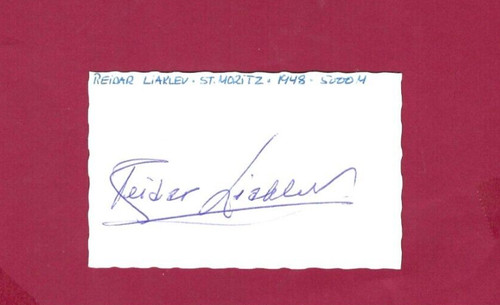 REIDAR LIAKLEV · ST. MORITZ · 1948 · 5000 M
Reidar Liaklev